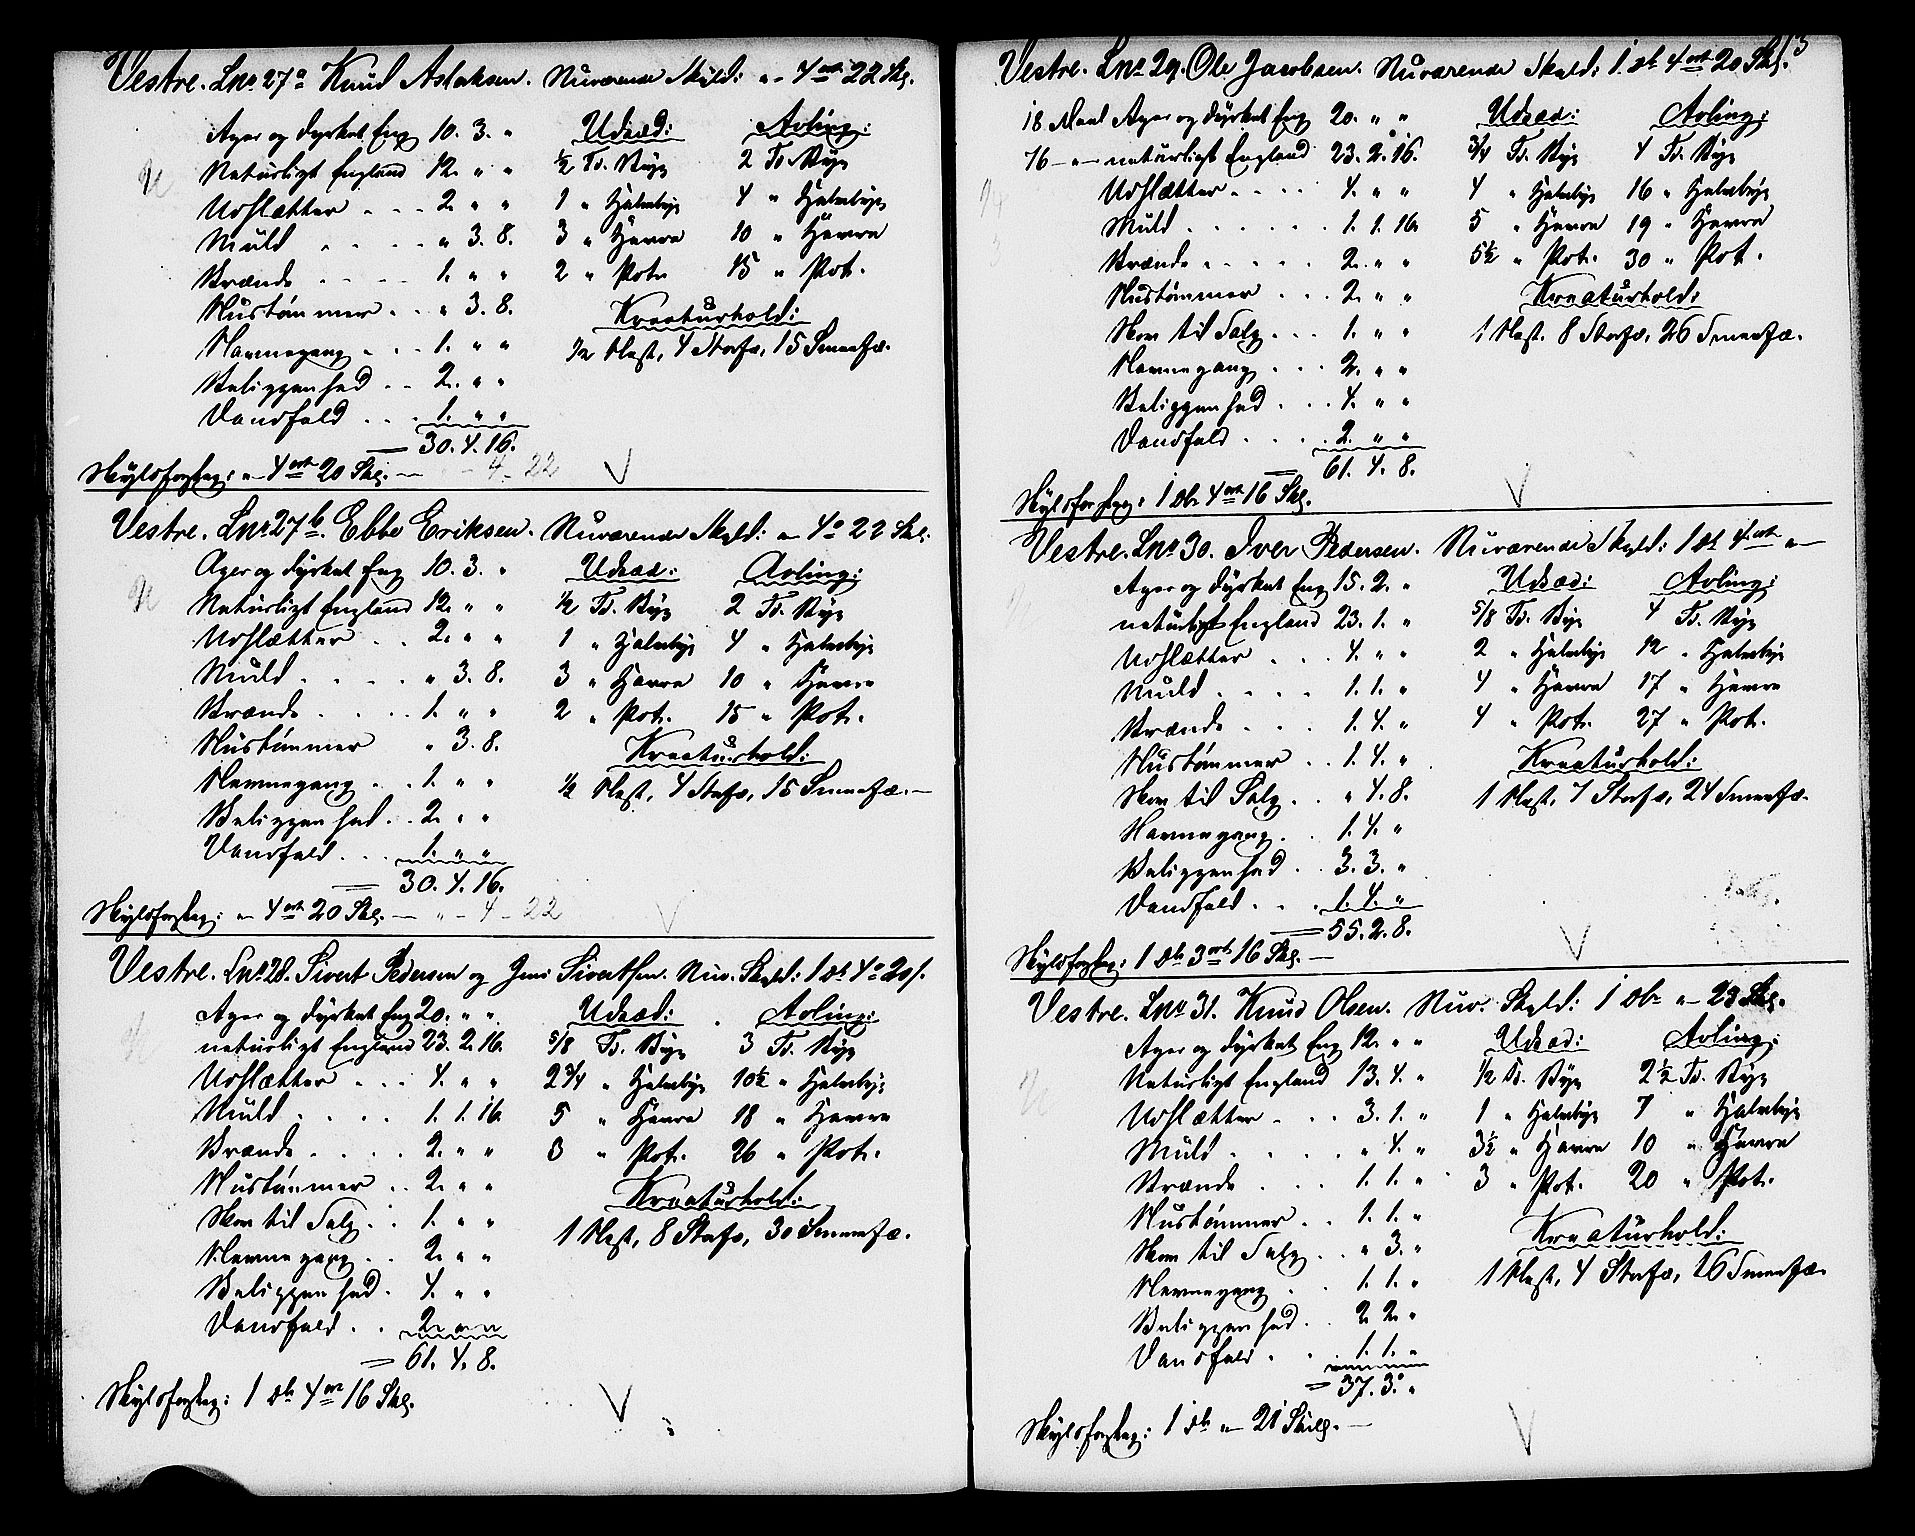 Vestre. Lno 27a Knud Aslaksen. Nuværende Skyld: „ – 4 ort 22 Skg.
Ager og dyrket Eng 10. 3. „ Udsæd: Avling:
Naturligt England 12. „ „ ½ Td. Byg 2 Td. Byg
Udslætter . . . 2. „ „ 1 „ Halvbyg 4 „ Halvbyg
Muld . . . . „ 3. 8. 3 „ Havre 10 „ Havre
Brænde . . . . 1. „ „ 2 „ Pot. 15 „ Pot.
Hustømmer . . „ 3. 8. Kreaturhold:
Havnegang . . . 1. „ „ ½ Hest, 4 Storfæ, 15 Smaafæ.
Beliggenhed . . 2. „ „
Vandfald . . . 1. „ „
= 30. 4. 16.
Skyldforslag: „ – 4 ort 20 Skg. — „ – 4 – 22 V
Vestre. Lno 27b. Ebbe Eriksen. Nuværende Skyld: „ – 4o 22 Skg.
Ager og dyrket Eng 10. 3. „ Udsæd: Avling:
Naturligt England 12. „ „ ½ Td. Byg 2 Td. Byg
Udslætter . . 2. „ „ 1 „ Halvbyg 4 „ Halvbyg
Muld . . . . „ 3. 8. 3 „ Havre 10 „ Havre
Brænde . . . . 1. „ „ 2 „ Pot. 15 „ Pot.
Hustømmer „ 3. 8. Kreaturhold:
Havnegang . . 1. „ „ ½ Hest, 4 Storfæ, 15 Smaafæ. —
Beliggenhed . . 2. „ „
Vandfald . . . 1. „ „
= 30. 4. 16.
Skyldforslag: „ – 4 ort 20 Skg. — „ – 4 – 22 V
Vestre. Lno 28. Sivert Pedersen og Jens Sivertsen. Nuv. Skyld: 1 Dlr 4o 20 s.
Ager og dyrket Eng 20. „ „ Udsæd: Avling:
naturligt England 23. 2. 16. 5/8 Td. Byg 3 Td. Byg
Udslætter . . . 4. „ „ 2 3/4 „ Halvbyg 10½ „ Halvbyg
Muld . . . . 1. 1. 16. 5 „ Havre 18 „ Havre
Brænde . . . . 2. „ „ 3 „ Pot. 26 „ Pot.
Hustømmer . . 2. „ „ Kreaturhold:
Skov til Salg . . 1. „ „ 1 Hest, 8 Storfæ, 30 Smaafæ.
Havnegang . . 2. „ „
Beliggenhed . 4. „ „
Vandfald . . 2. „ „
= 61. 4. 8.
Skyldforslag: 1 Dlr 4 ort 16 Skg. V
Vestre. Lno 29. Ole Jacobsen. Nuværende Skyld: 1 Dlr 4 ort 20 Skg.
18 Maal Ager og dyrket Eng 20. „ „ Udsæd: Avling:
76 – „ – naturligt England 23. 2. 16. 3/4 Td. Byg 4 Td. Byg
Udslætter . . . . 4. „ „ 4 „ Halvbyg 16 „ Halvbyg
Muld . . . . . . 1. 1. 16. 5 „ Havre 19 „ Havre
Brænde . . . . . 2. „ „ 5½ „ Pot. 30 „ Pot.
Hustømmer . . . 2. „ „ Kreaturhold:
Skov til Salg . . . 1. „ „ 1 Hest. 8 Storfæ, 26 Smaafæ.
Havnegang . . . 2. „ „
Beliggenhed . . . 4. „ „
Vandfald . . . . 2. „ „
= 61. 4. 8.
Skyldforslag: 1 Dlr 4 ort 16 Skg. V
Vestre. Lno 30. Iver Pedersen. Nuværende Skyld: 1 Dlr 4 ort „ —
Ager og dyrket Eng 15. 2. „ Udsæd: Avling:
naturligt England 23. 1. „ 5/8 Td. Byg 4 Td. Byg
Udslætter . . . 4. „ „ 2 „ Halvbyg 12 „ Halvbyg
Muld . . . . 1. 1. „ 4 „ Havre 17 „ Havre
Brænde . . . 1. 4. „ 4 „ Pot. 27 „ Pot.
Hustømmer . . 1. 4. „ Kreaturhold:
Skov til Salg . . „ 4. 8. 1 Hest, 7 Storfæ, 24 Smaafæ.
Havnegang . . 1. 4. „
Beliggenhed . . 3. 3. „
Vandfald . . . 1. 4. „
= 55. 2. 8.
Skyldforslag: 1 Dlr 3 ort 16 Skg. — V
Vestre. Lno 31. Knud Olsen. Nuv. Skyld: 1 Dlr „ – 23 Skg.
Ager og dyrket Eng 12. „ „ Udsæd: Avling:
Naturligt England 13. 4. „ ½ Td. Byg 2½ Td. Byg
Udslætter . . . 3. 1. „ 1 „ Halvbyg 7 „ Halvbyg
Muld . . . . . „ 4. „ 3½ „ Havre 10 „ Havre
Brænde . . . 1. 1. „ 3 „ Pot. 20 „ Pot.
Hustømmer . . 1. 1. „ Kreaturhold:
Skov til Salg . . „ 3. „ 1 Hest, 4 Storfæ, 16 Smaafæ.
Havnegang . . 1. 1. „
Beliggenhed . . 2. 2. „
Vandfald . . 1. 1. „
= 37. 3. „
Skyldforslag: 1 Dlr „ – 21 Skilg. — V